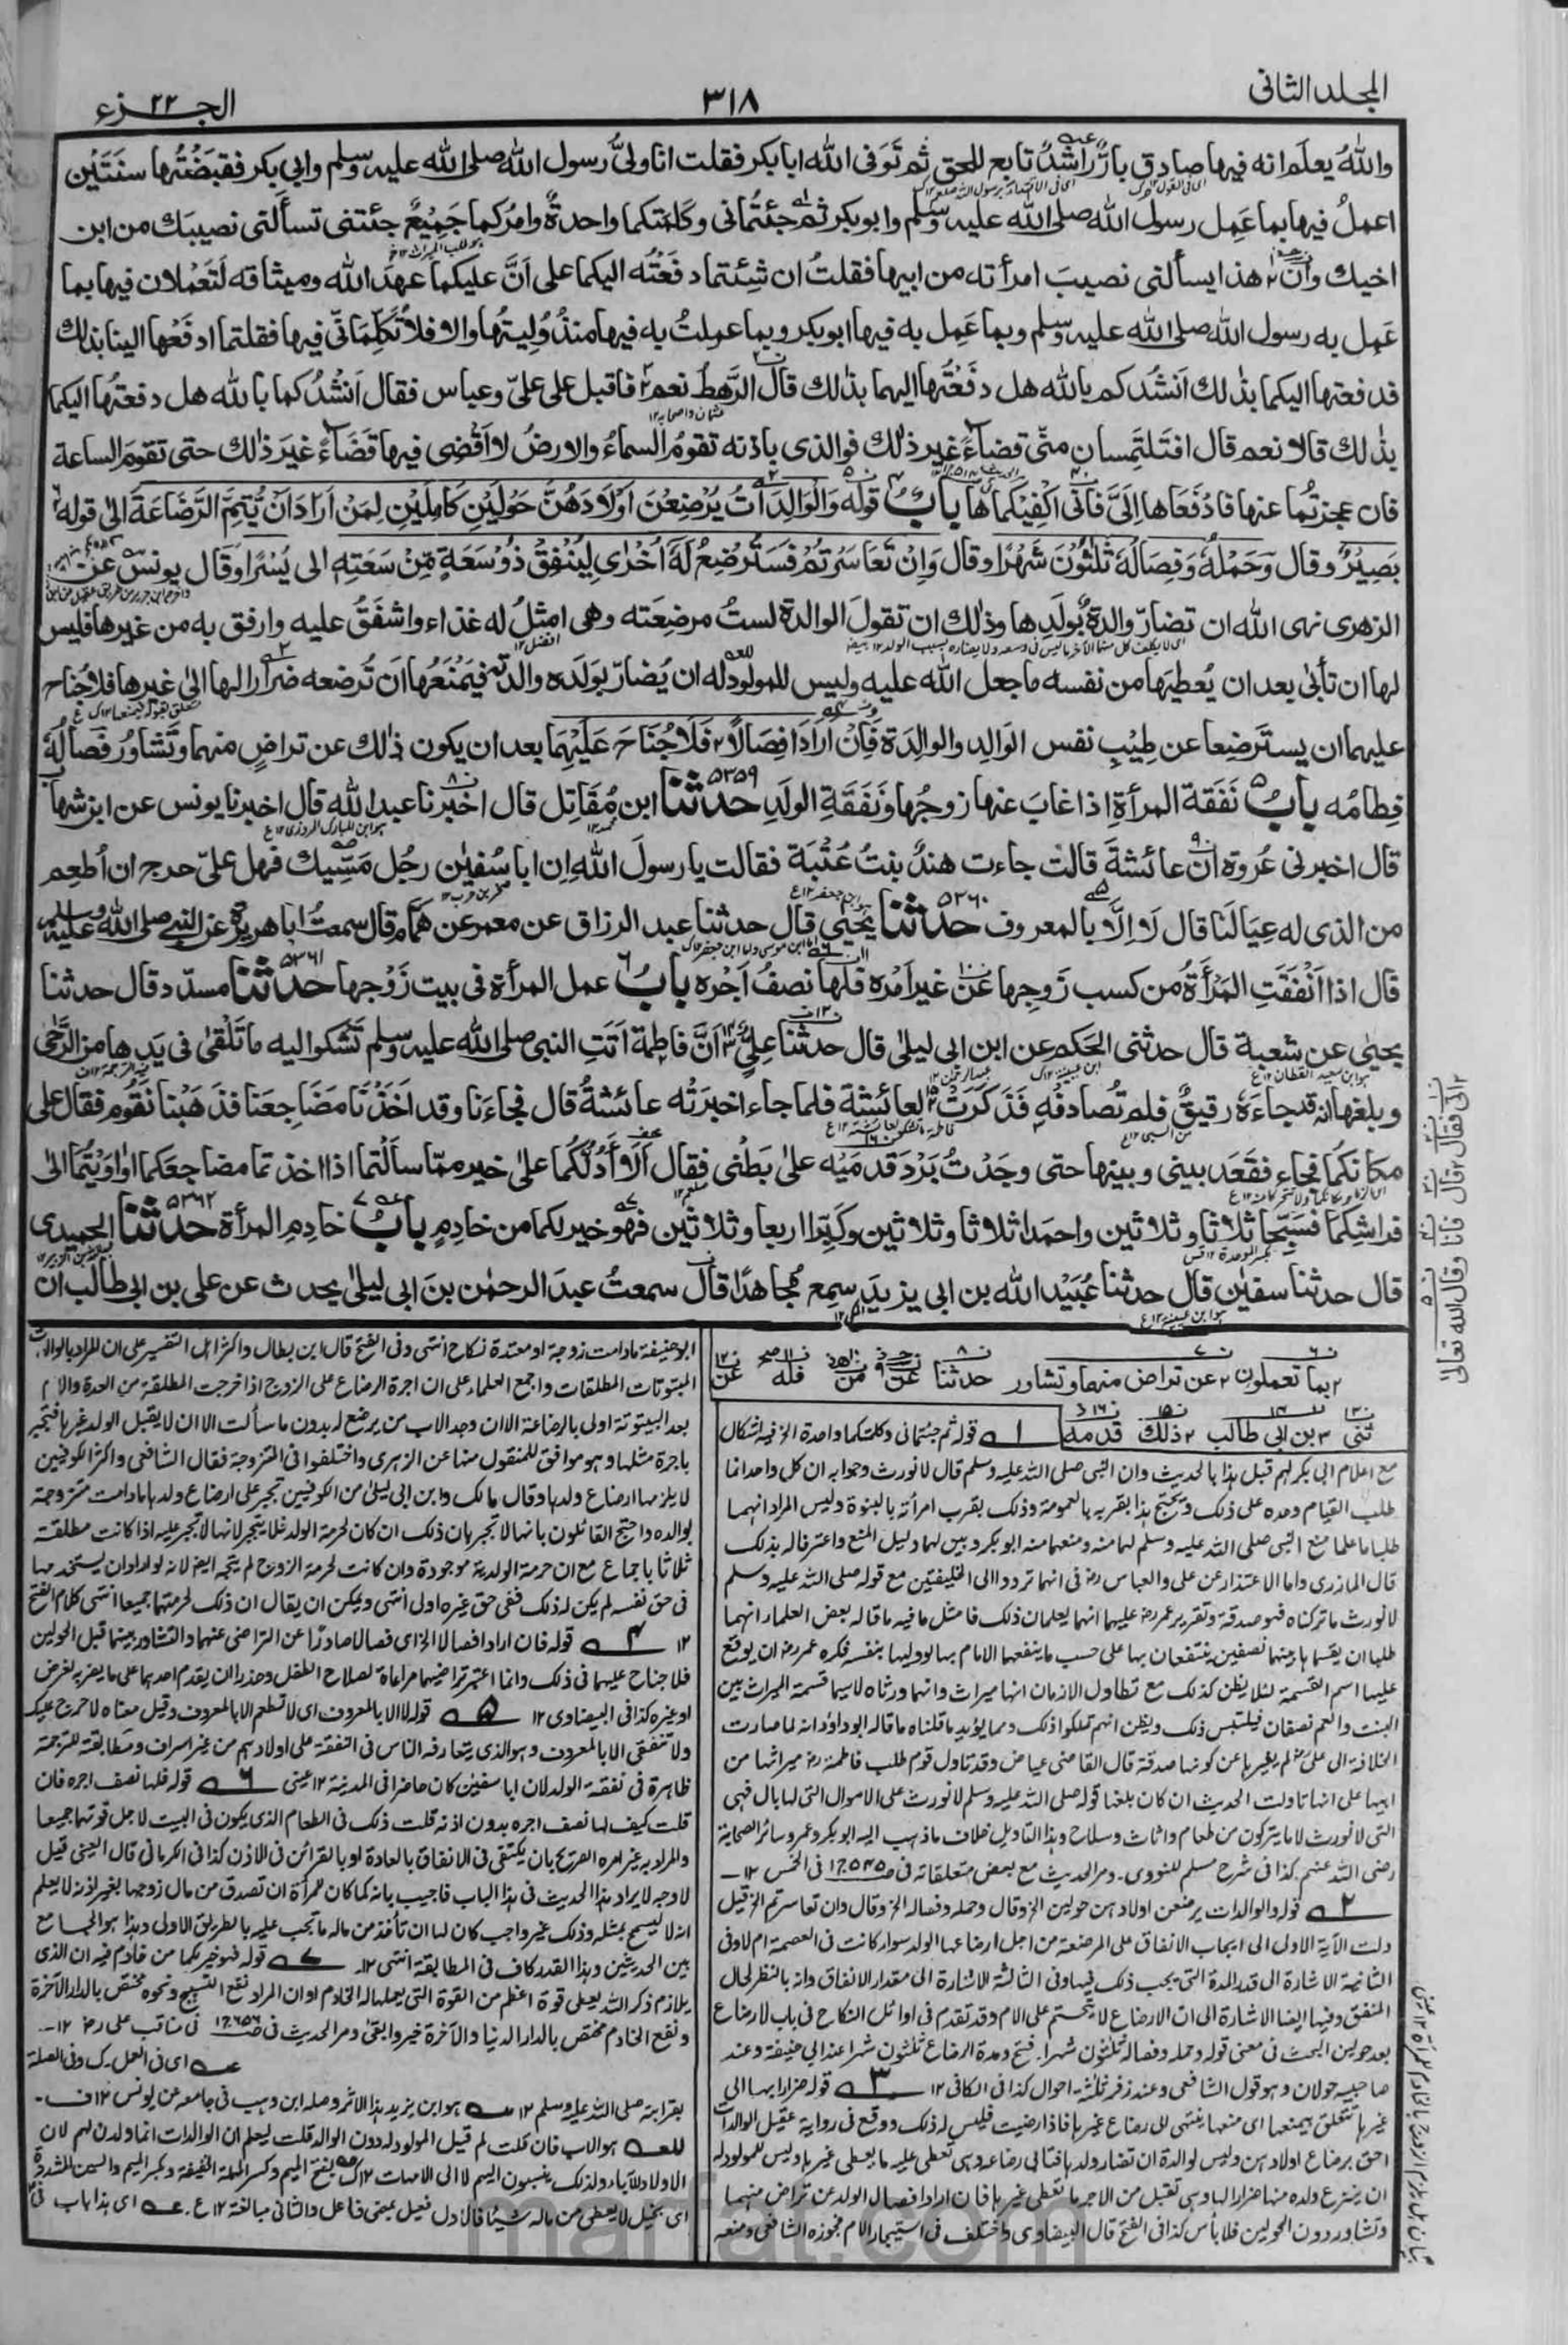 المجلد الثانی
٣١٨
الجزء ٢٢
واللهُ يعلَم انه فيها صادق بارٌّ راشدٌ تابع للحق ثم تَوَفی الله ابا بکر فقلت انا ولیُّ رسول الله صلى الله عليه وسلم وابی بکر فقبَضتُها سنَتَيْن
اعملُ فيها بما عَمِل رسول الله صلى الله عليه وسلم وابو بکر ثم جئتُمانی وکلمتکما واحدةٌ وامرُکما جَمِيعٌ جئتنی تسألنی نصيبَك من ابن
اخيك وأن هذا يسألنی نصيبَ امرأته من ابيها فقلتُ ان شِئتما دفَعتُه اليکما على اَنَّ عليکما عهدَ الله وميثاقه لَتَعْملان فيها بما
عَمِل به رسول الله صلى الله عليه وسلم وبما عَمِل به فيها ابو بکر وبما عمِلتُ به فيها منذُ وُلِيتُها والا فلا تُکلِّمانی فيها فقلتما ادفَعْها الينا بذلك
قد فعتها اليکما بذٰلك اَنشُدکم بالله هل دفَعْتُها اليهما بذٰلك قال الرَّهط نعم فاقبل على علیّ وعباس فقال اَنشُدُکما بالله هل دفعتُها اليکما
بذٰلك قالا نعم قال افتلتَمِسان منّی قضاءً غير ذٰلك فوالذی باذنه تقومُ السماءُ والارضُ لا اَقْضِی فيها قَضَاءً غيرَ ذٰلك حتى تقوم الساعة
فان عجزتُما عنها فادْفَعاها اِلَیَّ فانی اکْفِيکماها بابٌ قوله وَالْوَالِدَاتُ يُرْضِعْنَ اَوْلَادَهُنَّ حَوْلَيْنِ کَامِلَيْنِ لِمَنْ اَرَادَ اَنْ يُّتِمَّ الرَّضَاعَةَ الٰی قوله
بَصِيْرٌ وقال وَحَمْلُهٗ وَفِصَالُهٗ ثَلٰثُوْنَ شَهْرًا وقال وَاِنْ تَعَاسَرْتُمْ فَسَتُرْضِعُ لَهٗ اُخْرٰی لِيُنْفِقْ ذُوْ سَعَةٍ مِّنْ سَعَتِهٖ الى يُسْرًا وقال يونس عن
الزهری نهى الله ان تضارّ والدةٌ بولَدِها وذٰلك ان تقولَ الوالدة لستُ مرضِعَته وهی امثلُ له غذاء واشفَقُ عليه وارفق به من غيرها فليس
لها ان تأبىٰ بعد ان يُعطِيَها من نفسه ما جعل الله عليه وليس للمولود له ان يُضارّ بوَلَده والدته فيَمْنَعُها اَن تُرضعه ضِرَارًا لها الىٰ غيرها فلا جُناح
عليهما ان يسترضِعا عن طِيْبِ نفس الوالِد والوالِدة فَاِنْ اَرَادَا فِصَالًا فَلَا جُنَاحَ عَلَيْهِمَا بعد ان يکون ذٰلك عن تراضٍ منهما وتَشاوُر فصاله
فِطامُه بابُ نَفَقة المرأةِ اذا غابَ عنها زوجُها ونَفَقَةِ الولَدِ ٥٣٥٩ حدثنا ابن مُقاتِل قال اخبرنا عبد الله قال اخبرنا يونس عن ابن شهاب
قال اخبرنی عُروة ان عائشةَ قالت جاءت هندٌ بنتُ عُتْبَة فقالت يا رسولَ الله ان ابا سُفيٰن رجُل مَسِّيك فهل علیّ حرج ان اُطعِم
من الذی له عِيَالَنا قال لَا اِلَّا بالمعروف ٥٣٦٠ حدثنا يَحيیٰ قال حدثنا عبد الرزاق عن معمر عن هَمّام قال سمعتُ ابا هريرة عن النبی صلى الله عليه وسلم
قال اذا اَنْفَقَتِ المرأةُ من کسب زوجِها عن غير اَمْره فلها نصفُ اَجْره بابُ عمل المرأة فی بيت زَوْجها ٥٣٦١ حدثنا مسدّد قال حدثنا
يحيىٰ عن شعبة قال حدثنی الحکم عن ابن ابی ليلىٰ قال حدثنا علیٌّ اَنَّ فاطمة اَتَتِ النبی صلى الله عليه وسلم تَشْکوا اليه ما تَلْقىٰ فی يَدِها من الرَّحٰى
وبلغها انه قد جاءَه رقيقٌ فلم تُصادفْهِ فَذَکَرَتْ لعائشة فلما جاء اخبرَتْه عائشةُ قال فجاءَنا وقد اَخَذْنا مضَاجعَنا فذهَبْنا نَقُوم فقال على
مکانکُما فجاء فقَعَد بينی وبينها حتى وجَدْتُ بَرْدَ قدَمَيْه علىٰ بَطْنی فقال اَلَا اَدُلُّکُما علىٰ خيرٍ مما سالْتُما اذا اخذتما مضاجعَکما او اَوَيْتُما الىٰ
فراشِکما فسَبِّحا ثلاثا وثلاثين واحمَدا ثلاثا وثلاثين وکَبِّرا اربعا وثلاثين فهو خير لکما من خادِمٍ بابُ خادِمِ المرأة ٥٣٦٢ حدثنا الحميدی
قال حدثنا سفيٰن قال حدثنا عُبَيْد الله بن ابی يزيد سمِع مُجاهدًا قال سمعتُ عبدَ الرحمٰن بنَ ابی ليلىٰ يحدث عن على بن ابی طالب ان
بما تعملون عن تراض منهما وتشاور حدثنا عن من فله عن
ثنی بن ابی طالب ذلك قدمه
قوله ثم جئتمانی وکلمتکما واحدة الخ فيه اشکال
مع اعلام ابی بکر لهم قبل هذا بالحديث وان النبی صلى الله عليه وسلم قال لا نورث وجوابه ان کل واحد انما
طلب القيام وحده على ذلک ويحتج هذا بقربه بالعمومة وذلک بقرب امرأته بالبنوة وليس المراد انهما
طلبا ما علما منع النبی صلى الله عليه وسلم لهما منه ومنعهما منه ابو بکر وبين لهما دليل المنع واعترفا له بذلک
قال المازری واما الاعتذار عن علی والعباس رض فی انهما ترددا الى الخليفتين مع قوله صلى الله عليه وسلم
لا نورث ما ترکناه فهو صدقة وتقرير عمر رض عليهما انهما يعلمان ذلک فامثل ما فيه ما قاله بعض العلماء انهما
طلبا ان يقسمها بينهما نصفين ينتفعان بها على حسب ما ينفعهما الامام بها لو وليها بنفسه فکره عمر رض ان يوقع
عليها اسم القسمة لئلا يظن کذلک مع تطاول الازمان انها ميراث وانهما ورثاه لا سيما قسمة الميراث بين
البنت والعم نصفان فيلتبس ذلک ويظن انهم تملکوا ذلک ومما يؤيد ما قلناه ما قاله ابو داؤد انه لما صارت
الخلافة الى علی رض لم يغيرها عن کونها صدقة قال القاضی عياض وقد تاول قوم طلب فاطمة رض ميراثها من
ابيها على انها تاولت الحديث ان کان بلغها قوله صلى الله عليه وسلم لا نورث على الاموال التی لها بال فهی
التی لا نورث لا ما يترکون من طعام واثاث وسلاح وهذا التاويل خلاف ما ذهب اليه ابو بکر وعمر وسائر الصحابة
رضی الله عنهم کذا فی شرح مسلم للنووی۔ ومر الحديث مع بعض متعلقاته فی فی الخمس ١٢
٢ قوله والوالدات يرضعن اولادهن حولين الخ وقال وحمله وفصاله الخ وقال وان تعاسرتم الخ قيل
دلت الآية الاولى الى ايجاب الانفاق على المرضعة من اجل ارضاعها الولد سواء کانت فی العصمة ام لا وفی
الثانية الاشارة الى قدر المدة التی يجب ذلک فيها وفی الثالثة الاشارة الى مقدار الانفاق وانه بالنظر لحال
المنفق وفيها ايضا الاشارة الى ان الارضاع لا يتحتم على الام وقد تقدم فی اوائل النکاح فی باب لا رضاع
بعد حولين البحث فی معنى قوله وحمله وفصاله ثلثون شهرا۔ فتح ومدة الرضاع ثلثون شهرا عند ابی حنيفة وعند
صاحبيه حولان وهو قول الشافعی وعند زفر ثلثة احوال کذا فی الکافی ١٢ ٣ قوله ضرارا لها الى
غيرها تتعلق بيمنعها ای منعها ينتهی الى رضاع غيرها فاذا رضيت فليس له ذلک ووقع فی رواية عقيل الوالدات
احق برضاع اولادهن وليس لوالدة ان تضار ولدها فتابى رضاعه وهی تعطى عليه ما يعطى غيرها وليس للمولود له
ان ينتزع ولده منها ضرارا لها وهی تقبل من الاجر ما تعطى غيرها فان ارادا فصال الولد عن تراض منهما
وتشاور دون الحولين فلا بأس کذا فی الفتح قال البيضاوی واختلف فی استيجار الام فجوزه الشافعی ومنعه
ابو حنيفة ما دامت زوجة او معتدة نکاح انتهى وفی الفتح قال ابن بطال واکثر اهل التفسير على ان المراد بالوالدات
المبتوتات المطلقات واجمع العلماء على ان اجرة الرضاع على الزوج اذا خرجت المطلقة من العدة والام
بعد البينونة اولى بالرضاعة الا ان وجد الاب من يرضع له بدون ما سألت الا ان لا يقبل الولد غيرها فتجبر
باجرة مثلها وهو موافق للمنقول هنا عن الزهری واختلفوا فی المتزوجة فقال الشافعی واکثر الکوفيين
لا يلزمها ارضاع ولدها وقال مالک وابن ابی ليلىٰ من الکوفيين تجبر على ارضاع ولدها ما دامت متزوجة
بوالده واحتج القائلون بانها لا تجبر بان ذلک ان کان لحرمة الولد فلا يتجه لانها لا تجبر عليه اذا کانت مطلقة
ثلاثا باجماع مع ان حرمة الولدية موجودة وان کانت لحرمة الزوج لم يتجه ايضا لانه لو اراد ان يستخدمها
فی حق نفسه لم يکن له ذلک ففی حق غيره اولى انتهى ويمکن ان يقال ان ذلک لحرمتهما جميعا انتهى کلام الفتح
١٢ ٤ قوله فان ارادا فصالا الخ ای فصالا صادرًا عن التراضی عنهما والتشاور بينهما قبل الحولين
فلا جناح عليهما فی ذلک وانما اعتبر تراضيهما مراعاة لصلاح الطفل وحذرا ان يقدم احدهما على ما يضر به لغرض
او غيره کذا فی البيضاوی ١٢ ٥ قوله لا الا بالمعروف ای لا تطعم الا بالمعروف وقيل معناه لا حرج عليک
ولا تنفقی الا بالمعروف وهو الذی يتعارفه الناس فی النفقة على اولادهم من غير اسراف ومطابقته للترجمة
ظاهرة فی نفقة الولد لان ابا سفيٰن کان حاضرا فی المدينة ١٢ عينی ٦ قوله فلها نصف اجره فان
قلت کيف لها نصف اجره بدون اذنه قلت ذلک فی الطعام الذی يکون فی البيت لاجل قوتهما جميعا
والمراد به غير امره الصريح بان يکتفى فی الانفاق بالعادة او بالقرائن فی الاذن کذا فی الکرمانی قال العينی قيل
لا وجه لايراد هذا الحديث فی هذا الباب فاجيب بانه کما کان للمرأة ان تصدق من مال زوجها بغير اذنه لا يعلم
انه ليسمح بمثله وذلک غير واجب کان لها ان تأخذ من ماله ما تجب عليه بالطريق الاولى وهذا هو الجامع
بين الحديثين وهذا القدر کاف فی المطابقة انتهى ١٢۔ ٧ قوله فهو خير لکما من خادم فيه ان الذی
يلازم ذکر الله يعطى قوة اعظم من القوة التی يعملها له الخادم او ان المراد نفع التسبيح ونحوه مختص بالدار الآخرة
ونفع الخادم مختص بالدار الدنيا والآخرة خير وابقىٰ ومر الحديث فی فی مناقب علی رض ١٢
ای فی العمل۔ ک وفی الصلة
بقرابته صلى الله عليه وسلم ١٢ هو ابن يزيد هذا الاثر وصله ابن وهب فی جامعه عن يونس ١٢ ف۔
هو الاب فان قلت لم قيل المولود له دون الوالد قلت ليعلم ان الوالدات انما ولدن لهم لان
الاولاد للآباء ولذلک ينسبون اليهم لا الى الامهات ١٢ ک بفتح الميم وکسر المهملة الخفيفة وبکسر الميم والسين المشددة
ای بخيل لا يعطى من ماله شيئا فالاول فعيل بمعنى فاعل والثانی مبالغة ١٢ ع۔ ای هذا باب فی
الى فقال قال فانا وقال الله تعالى
marfat.com